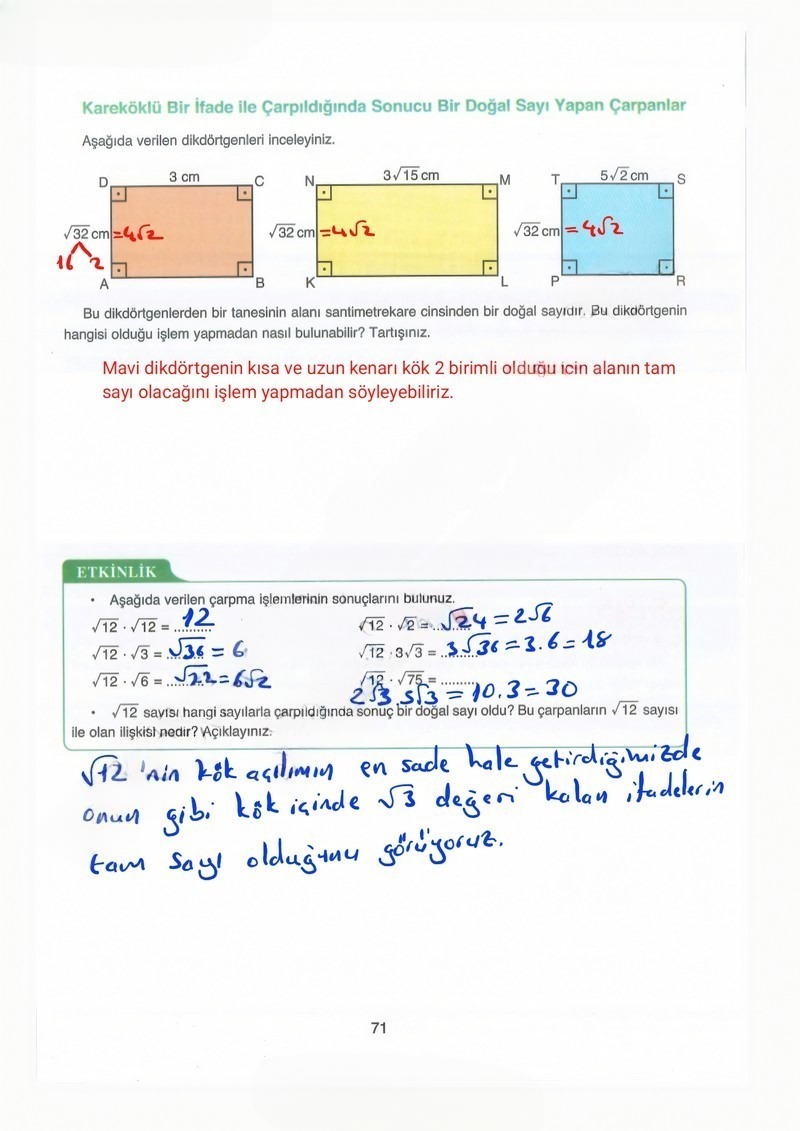 Kareköklü Bir İfade ile Çarpıldığında Sonucu Bir Doğal Sayı Yapan Çarpanlar
Aşağıda verilen dikdörtgenleri inceleyiniz.
D 3 cm C N 3√15 cm M T 5√2 cm S
√32 cm =4√2 √32 cm =4√2 √32 cm =4√2
16 2
A B K L P R
Bu dikdörtgenlerden bir tanesinin alanı santimetrekare cinsinden bir doğal sayıdır. Bu dikdörtgenin
hangisi olduğu işlem yapmadan nasıl bulunabilir? Tartışınız.
Mavi dikdörtgenin kısa ve uzun kenarı kök 2 birimli olduğu icin alanın tam
sayı olacağını işlem yapmadan söyleyebiliriz.
ETKİNLİK
• Aşağıda verilen çarpma işlemlerinin sonuçlarını bulunuz.
√12 · √12 = 12 √12 · √2 = √24 = 2√6
√12 · √3 = √36 = 6 √12 · 3√3 = 3√36 = 3.6 = 18
√12 · √6 = √72 = 6√2 √12 · √75 = ..........
2√3.5√3 = 10.3 = 30
• √12 sayısı hangi sayılarla çarpıldığında sonuç bir doğal sayı oldu? Bu çarpanların √12 sayısı
ile olan ilişkisi nedir? Açıklayınız.
√12 'nin kök açılımın en sade hale getirdiğimizde
onun gibi kök içinde √3 değeri kalan ifadelerin
tam sayı olduğunu görüyoruz.
71